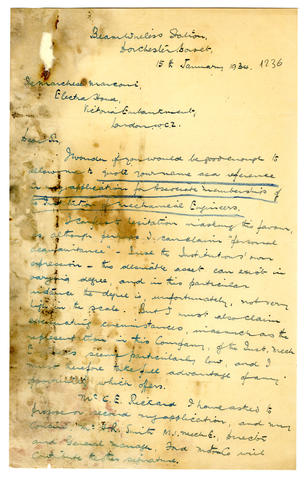 Beam Wireless Station,
Dorchester, Dorset.
15th January, 1934. 1236
Marchese Marconi,
Electra House,
Victoria Embankment,
London, W.C.2.
Dear Sir,
I wonder if you would be good enough to
allow me to quote your name as a reference
in my application for Associate membership of
Institution of Mechanical Engineers.
hesitation in asking the favour,
as although I can claim "personal
acquaintance" - I use the Institution's own
expression - this desirable asset can exist in
varying degree, and in this particular
instance the degree is unfortunately, not very
high in the scale. But I must also claim
extenuating circumstances, inasmuch as the
representation in this Company, of the Inst. Mech.
seems particularly low, and I
must therefore take full advantage of any
which offers.
Mr. G. E. Rickard I have asked to
propose or second my application, and
Mr. Smith M.I.Mech.E., Director
and General Manager, will
contribute to the signatures.